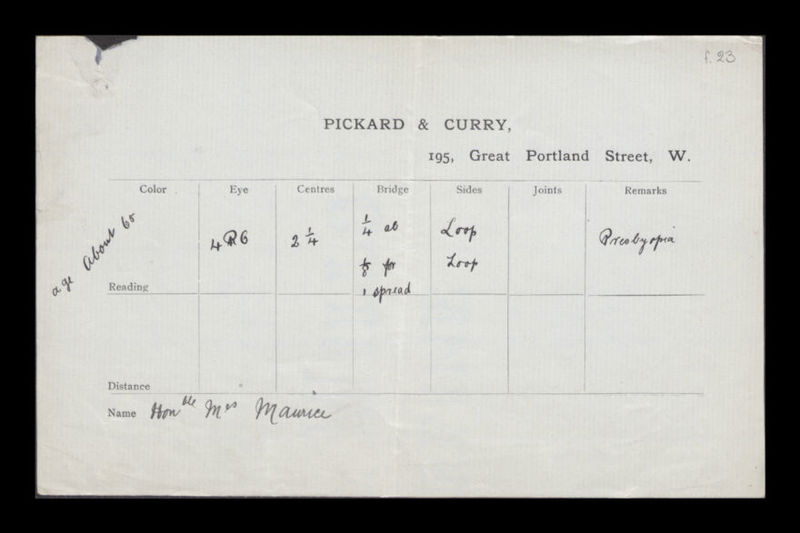 f. 23
PICKARD & CURRY,
195, Great Portland Street, W.
Color Eye Centres Bridge Sides Joints Remarks
age About 65
2 1/4
1/4 at Loop
Presbyopia
for Loop
1 spread
Reading
Distance
Name Honble Mrs Maurice